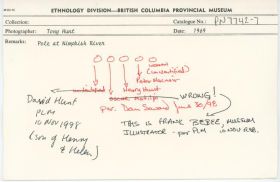 ETHNOLOGY DIVISION—BRITISH COLUMBIA PROVINCIAL MUSEUM
Catalogue No.: PN 7742-7
Photographer: Tony Hunt
Date: 1969
Remarks:
Pole at Nimpkish River
woman
(unidentified)
Peter Macnair
Henry Hunt
unidentified
WRONG!
per. Dan Savard June 30/98
David Hunt
PLM
10 Nov 1998
(son of Henry
& Helen)
THIS IS FRANK BEEBE, MUSEUM
ILLUSTRATOR - per PLM 10 NOV 1998.